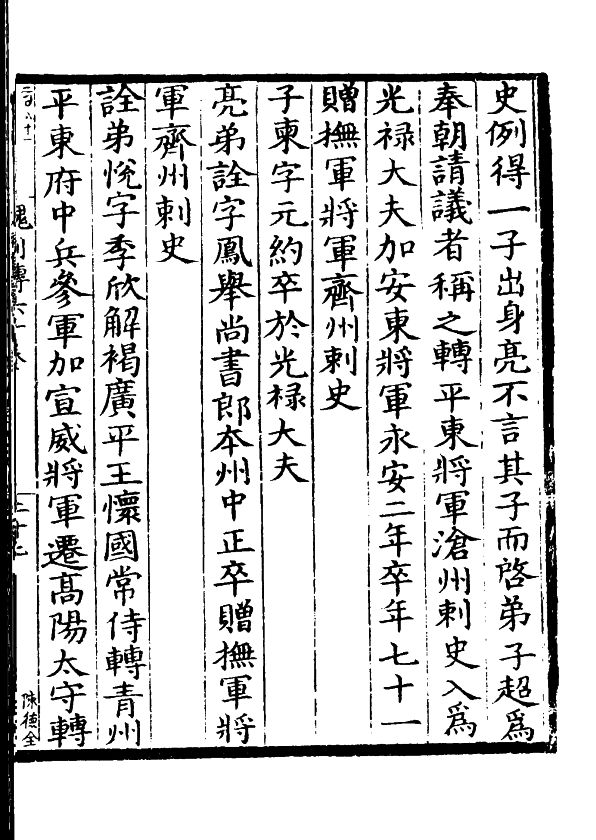 史例得一子出身亮不言其子而啓弟子超爲
奉朝請議者稱之轉平東將軍滄州刺史入爲
光祿大夫加安東將軍永安二年卒年七十一
贈撫軍將軍齊州刺史
子柬字元約卒於光祿大夫
亮弟詮字鳳舉尚書郎本州中正卒贈撫軍將
軍齊州刺史
詮弟悅字季欣解褐廣平王懷國常侍轉青州
平東府中兵參軍加宣威將軍遷高陽太守轉
陳德全